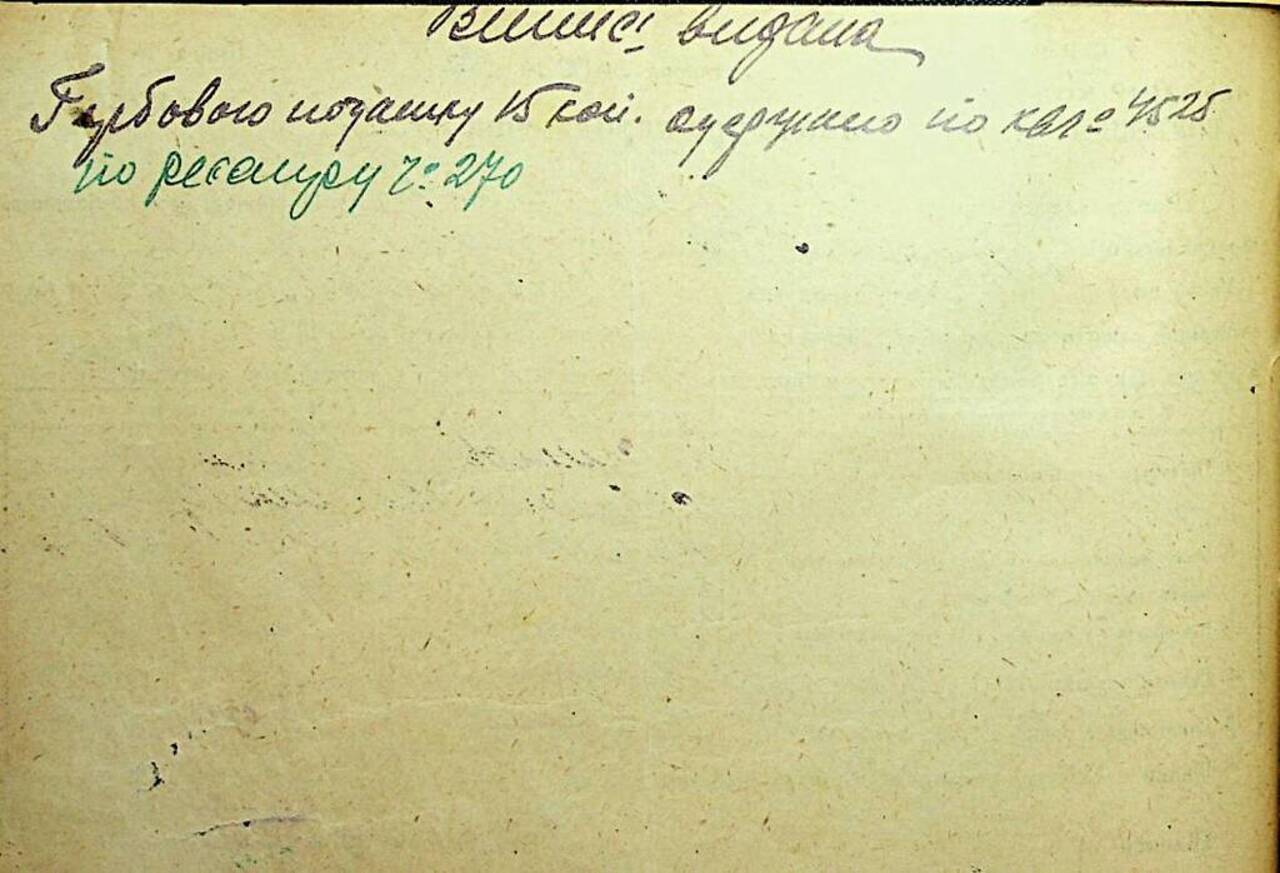 Випис видана
Гербового податку 15 коп. одержано по кв. № 4525
по реєстру № 270